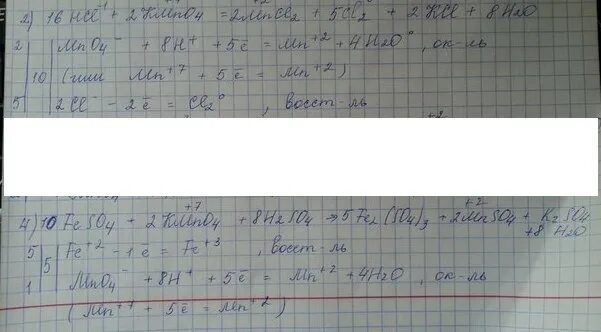 2) 16 HCl⁻¹ + 2 KMnO₄ = 2MnCl₂ + 5Cl₂ + 2 KCl + 8H₂O
2 | MnO₄⁻ + 8H⁺ + 5ē = Mn⁺² + 4H₂O°, ок-ль
10 (или Mn⁺⁷ + 5ē = Mn⁺²)
5 | 2Cl⁻ - 2ē = Cl₂°, восст-ль
4) 10 FeSO₄ + 2 KMnO₄ + 8H₂SO₄ → 5Fe₂(SO₄)₃ + 2MnSO₄ + K₂SO₄
+7 +2
+ 8 H₂O
5 | 5 | Fe⁺² - 1ē = Fe⁺³, восст-ль
1 | MnO₄⁻ + 8H⁺ + 5ē = Mn⁺² + 4H₂O, ок-ль
(Mn⁺⁷ + 5ē = Mn⁺²)